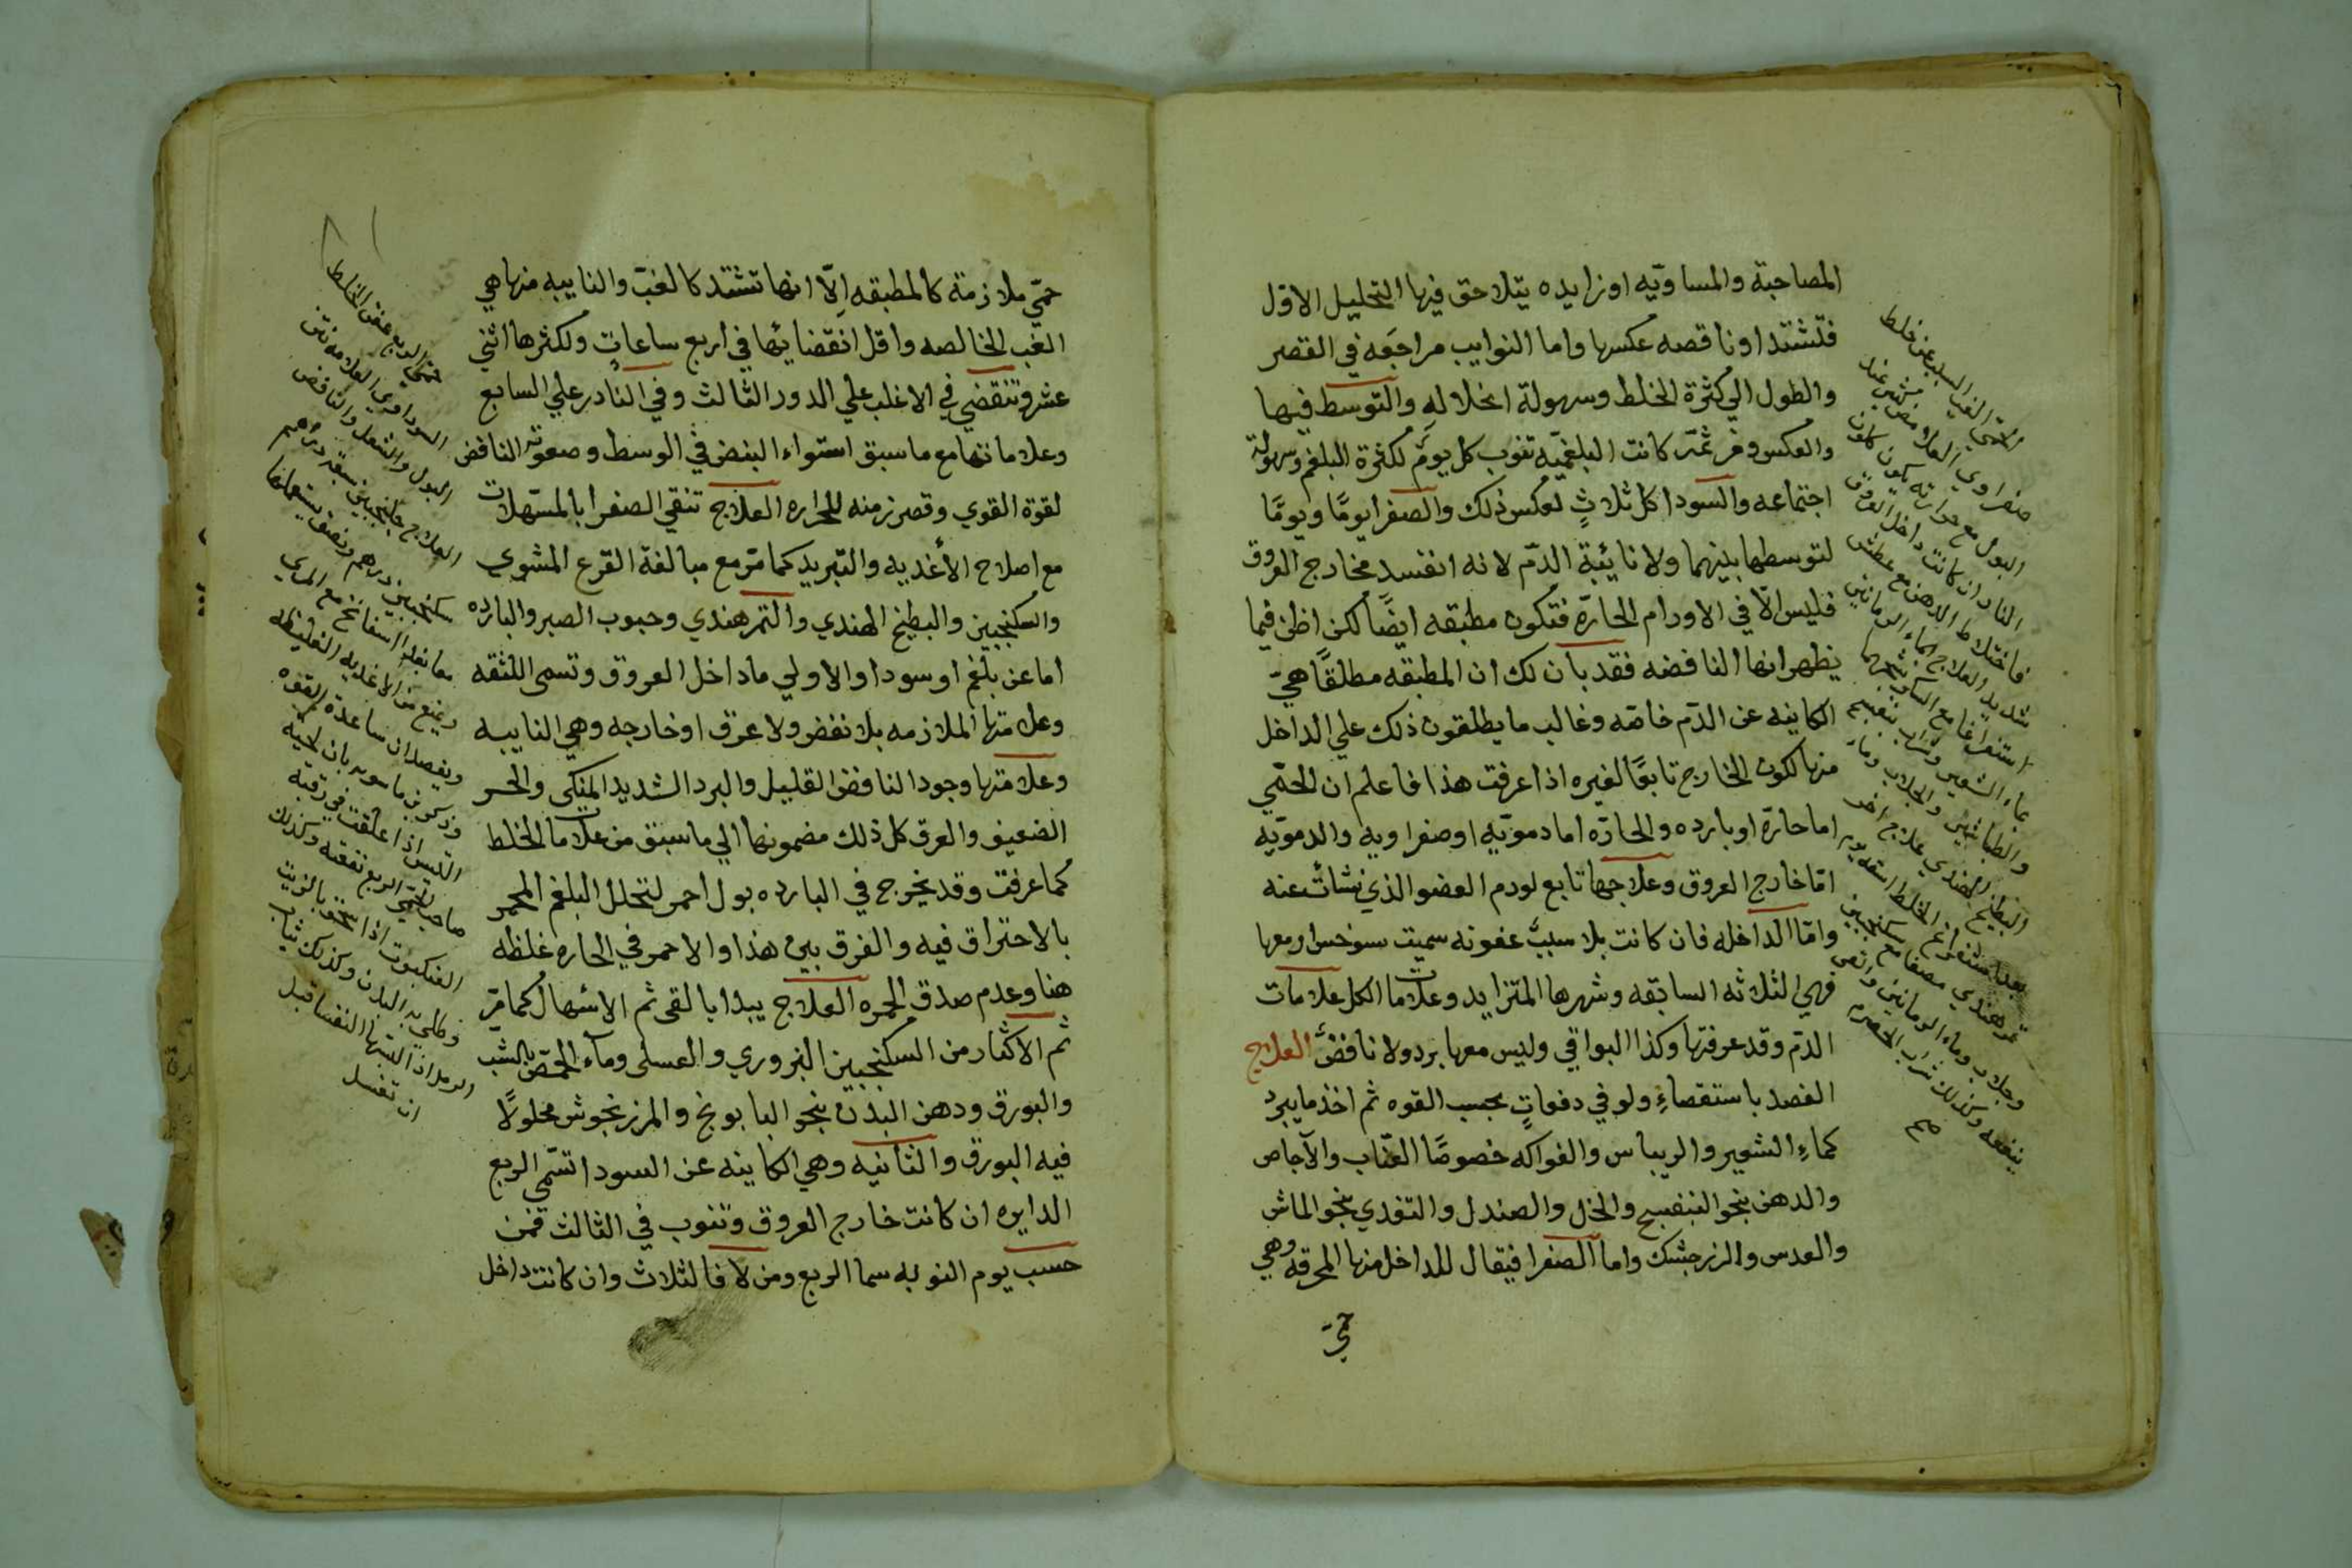 المصاحبة والمساويه او زايده يتلاحق فيها التحليل الاول
فتشتد او ناقصه عكسها واما النوايب مراجعه في القصر
والطول الي كثرة الخلط وسهولة انحلاله والتوسط فيها
والعكس ومن ثمّ كانت البلغميه تنوب كل يوم لكثرة البلغم وسهولة
اجتماعه والسودا كل ثلاث لعكس ذلك والصفرا يومًا ويومًا
لتوسطها بينهما ولا نائبة الدم لانه ان فسد خارج العروق
فليس الّا في الاورام الحارّة فتكون مطبقه ايضًا لكن اظن فيما
يظهر انها النافضه فقد بان لك ان المطبقه مطلقًا هيَ
الكاينه عن الدم خاصه وغالب ما يطلقون ذلك علي الداخل
منها لكون الخارج تابعًا لغيره اذا عرفت هذا فاعلم ان الحمّي
اما حارّة او بارده والحارّه اما دمويّه او صفراويه والدمويّه
امّا خارج العروق وعلاجها تابع لورم العضو الذي نشأت عنه
وامّا الداخله فان كانت بلا سبب عفونه سميت سونوخس ومعها
فهي الثلاثه السابقه وشهرها المتزايد وعلامات الكل علامات
الدّم وقد عرفتها وكذا البواقي وليس معها برد ولا نافض العلاج
الفصد باستقصاءٍ ولو في دفعاتٍ بحسب القوه ثم اخذ ما يبرد
كماءِ الشعير والريباس والفواكه خصوصًا العنّاب والآجاص
والدهن بنحو البنفسج والخل والصندل والتغذي بنحو الماش
والعدس والزرجشك واما الصفرا فيقال للداخل منها المحرقه وهي
حمّيَ
الحمّي الغب السليه عن خلط
صفراوي العلا
البول مع حرارته يكون كلون
النار ان كانت داخل العروق
فاختلاط الدهن مع عطش
شديد العلاج الماء الرمانين
بماء الشعير وشراب بنفسج
والطباشير والجلاب وماء
البطيخ الهندي علاج اخر
تمرهندي مصفا مع سكنجبين
وجلاب وماء الرمانين
ينفعه وكذلك شراب الحصرم
حمّي ملازمة كالمطبقه الّا انها تشتد كالغبّ والنايبه منها هي
الغب الخالصه واقل انقضائها في اربع ساعات ولكثرها اثني
عشر وتنقضي في الاغلب علي الدور الثالث وفي النادر علي السابع
وعلاماتها مع ما سبق استواء النبض في الوسط وصعوبة النافض
لقوة القوي وقصر زمنه للحراره العلاج تنقي الصفرا بالمسهلات
مع اصلاح الأغديه والتبريد كما مرّ مع مبالغة القرع المشوي
والسكنجبين والبطيخ الهندي والتمرهندي وحبوب الصبر والبارده
اما عن بلغم او سودا والاولي ما داخل العروق وتسمي اللثقه
وعلامتها الملازمه بلا نفض ولا عرق او خارجه وهي النايبه
وعلامتها وجود النافض القليل والبرد الشديد المنكي والحر
الضعيف والعرق كل ذلك مضمومًا الي ما سبق من علامات الخلط
كما عرفت وقد يخرج في البارده بول احمر لتحلل البلغم المحمر
بالاحتراق فيه والفرق بين هذا والاحمر في الحاره غلظه
هنا وعدم صدق الحمره العلاج يبدا بالقي ثم الاسهال كما مرّ
ثم الاكثار من السكنجبين البزوري والعسلي ومآء الحمّص بالشب
والبورق ودهن البدن بنحو البابونج والمرزنجوش محلولًا
فيه البورق والثانيه وهي الكاينه عن السودا تسمّي الربع
الدايره ان كانت خارج العروق وتنوب في الثالث فمن
حسب يوم النوبه سما الربع ومن لا فالثلاث وان كانت داخل
حمّي الربع عفن الخلط
السوداوي العلامه نتن
البول والثقل والنافض
العلاج جلنجبين سبعة دراهم
سكنجبين درهم ونصف يستعملها
معا بغدا اسفاناخ مع المري
ويمنع من الاغديه الغليظه
ويفصد ان ساعدة القوه
وذكر بن ماسويه بان لحية
التيس اذا علقت في رقبة
صاحب الحمّي الربع نفعته وكذلك
العنكبوت اذا سحق بالزيت
وطلي به البدن وكذلك ثياب
النفسا قبل
ان تغسل